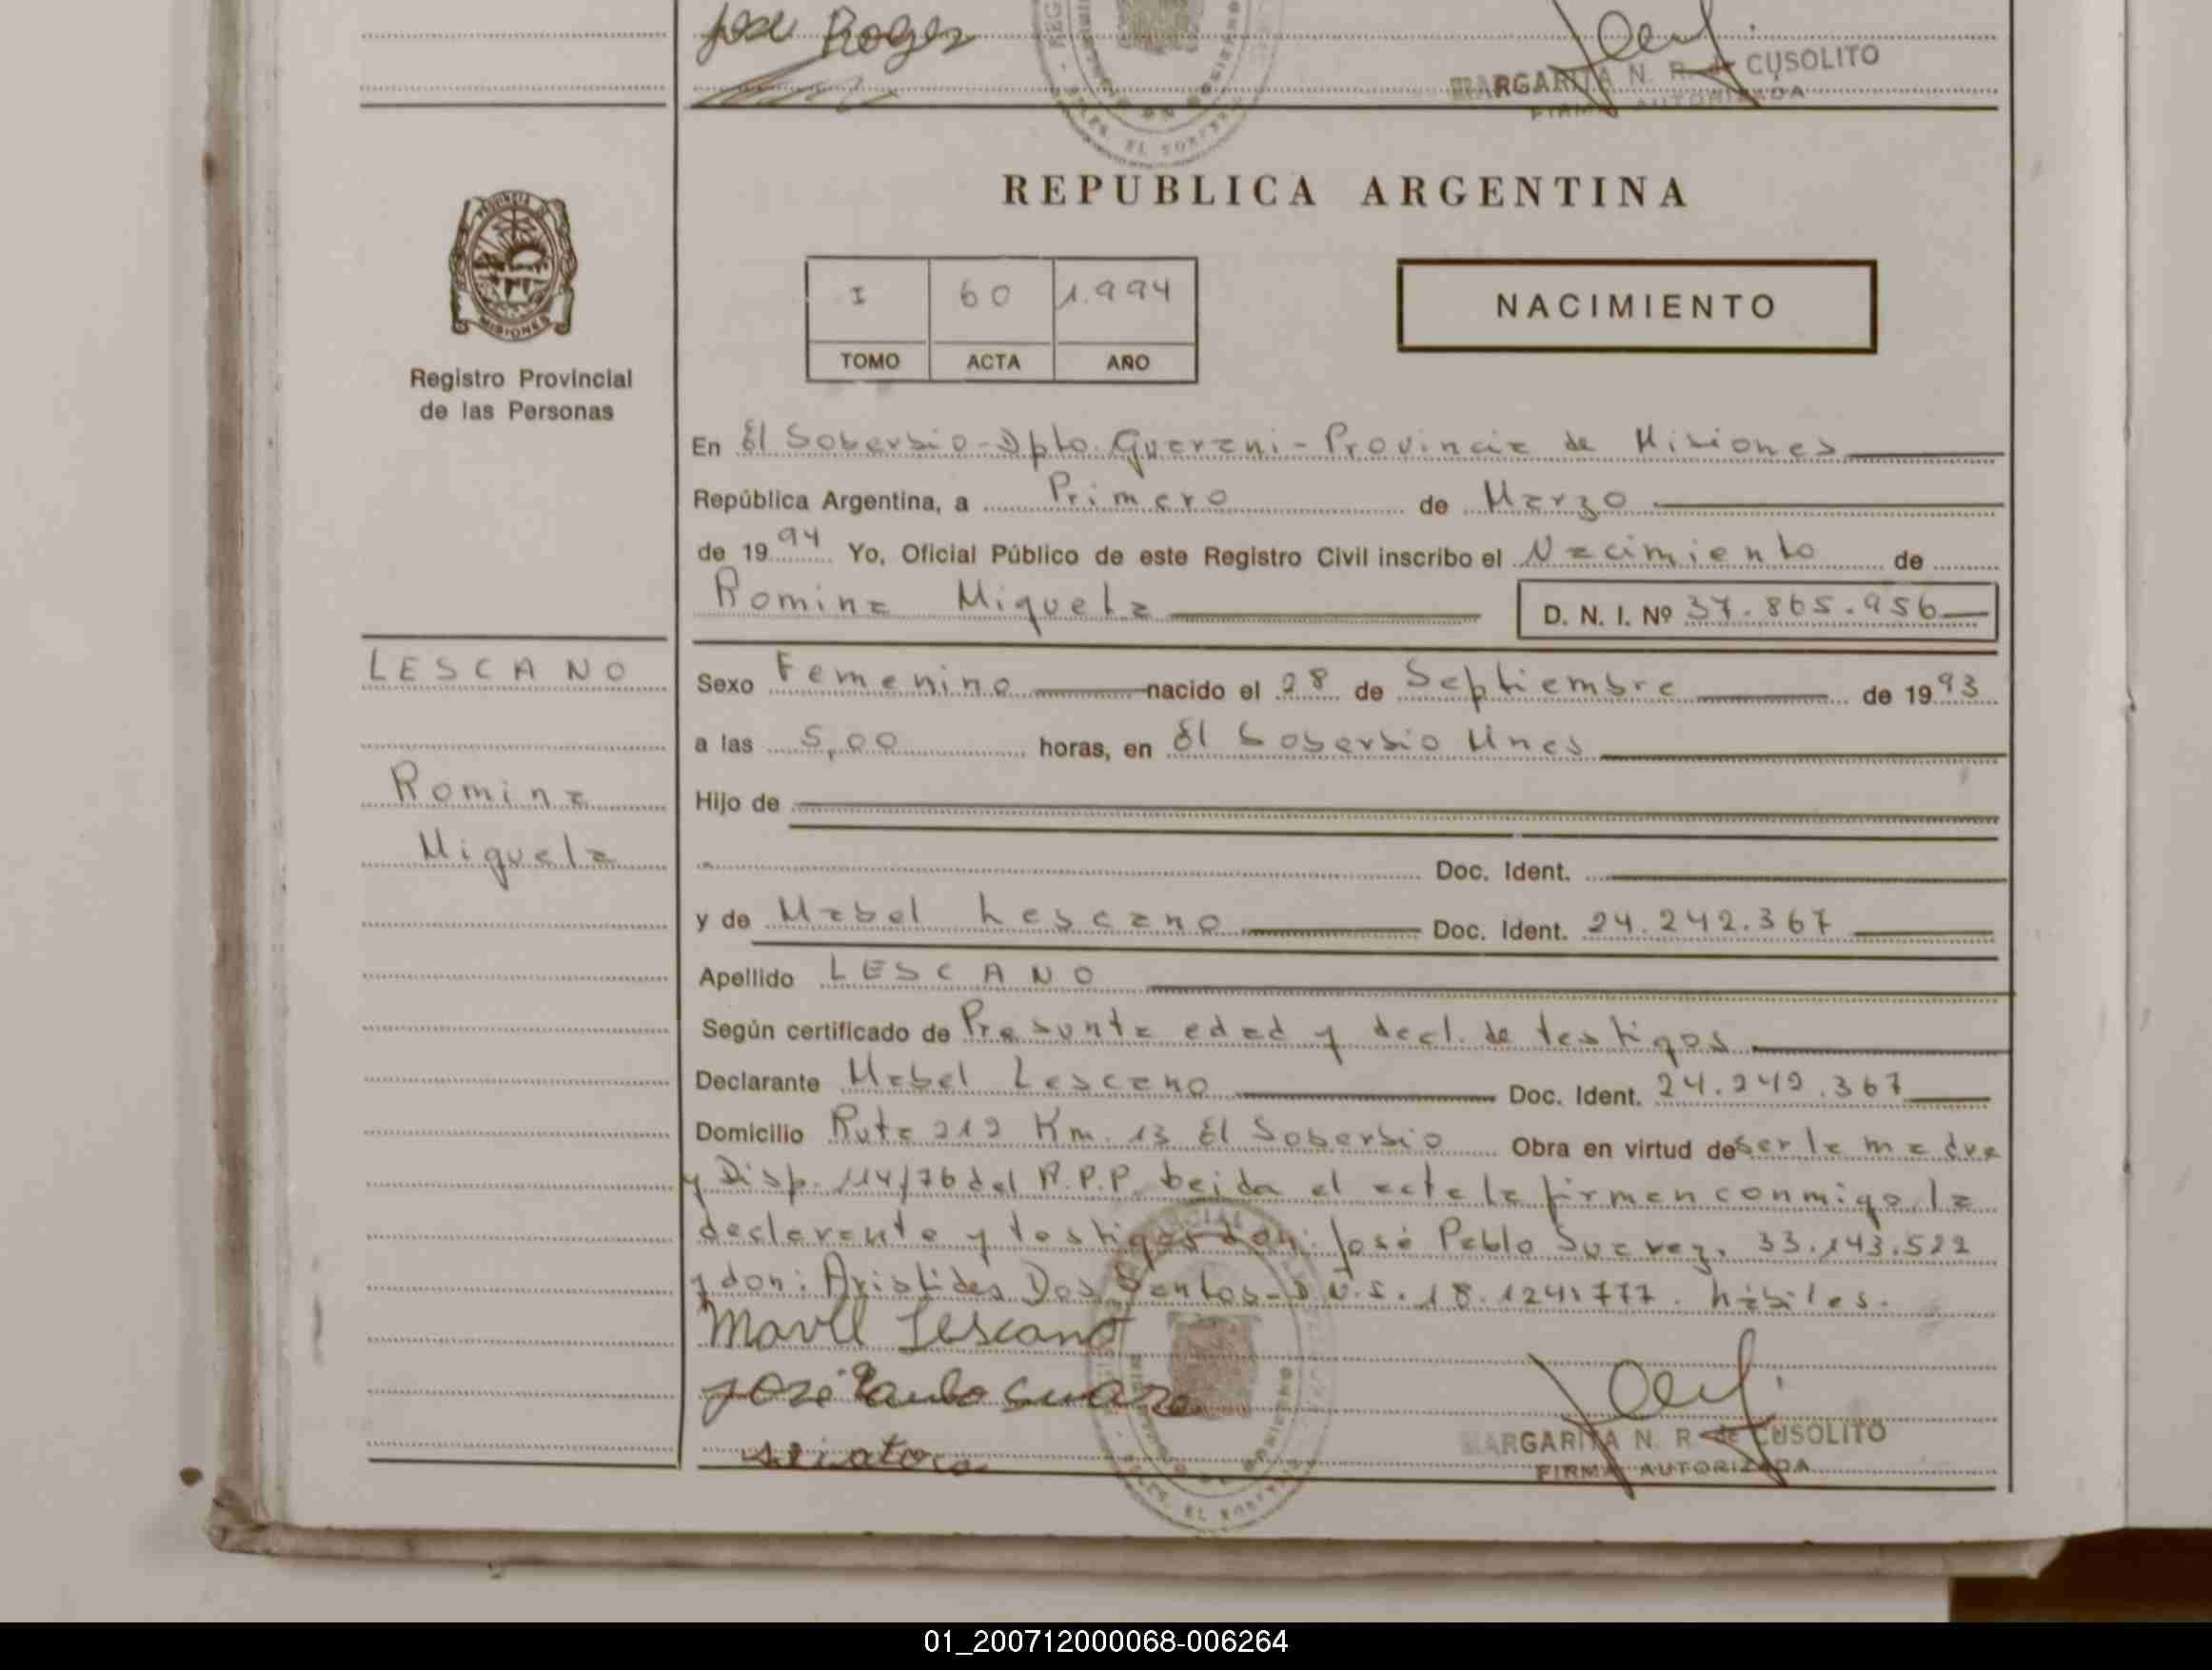 Jose Roger
MARGARITA N. R. de CUSOLITO
FIRMA AUTORIZADA
REPUBLICA ARGENTINA
PROVINCIA DE
MISIONES
Registro Provincial
de las Personas
I 60 1.994
TOMO ACTA AÑO
NACIMIENTO
En El Soberbio-Dpto. Guarani-Provincia de Misiones
República Argentina, a Primero de Marzo
de 1994 Yo, Oficial Público de este Registro Civil inscribo el Nacimiento de
Romina Miguela D. N. I. Nº 37.865.956
LESCANO
Romina
Miguela
Sexo Femenino nacido el 28 de Septiembre de 1993
a las 5,00 horas, en El Soberbio Mnes
Hijo de
Doc. Ident.
y de Mabel Lescano Doc. Ident. 24.242.367
Apellido LESCANO
Según certificado de Presunta edad y decl. de testigos
Declarante Mabel Lescano Doc. Ident. 24.242.367
Domicilio Ruta 212 Km. 13 El Soberbio Obra en virtud de ser la madre
y Disp. 114/76 del R.P.P. Leida el acta la firman conmigo, la
declarante y testigos don: José Pablo Suarez. 33.143.522
y don: Aristides Dos Santos-D.N.I. 18.124.777. hábiles.
Mavel Lescano
José Paulo Suare
MARGARITA N. R. de CUSOLITO
FIRMA AUTORIZADA
01_200712000068-006264